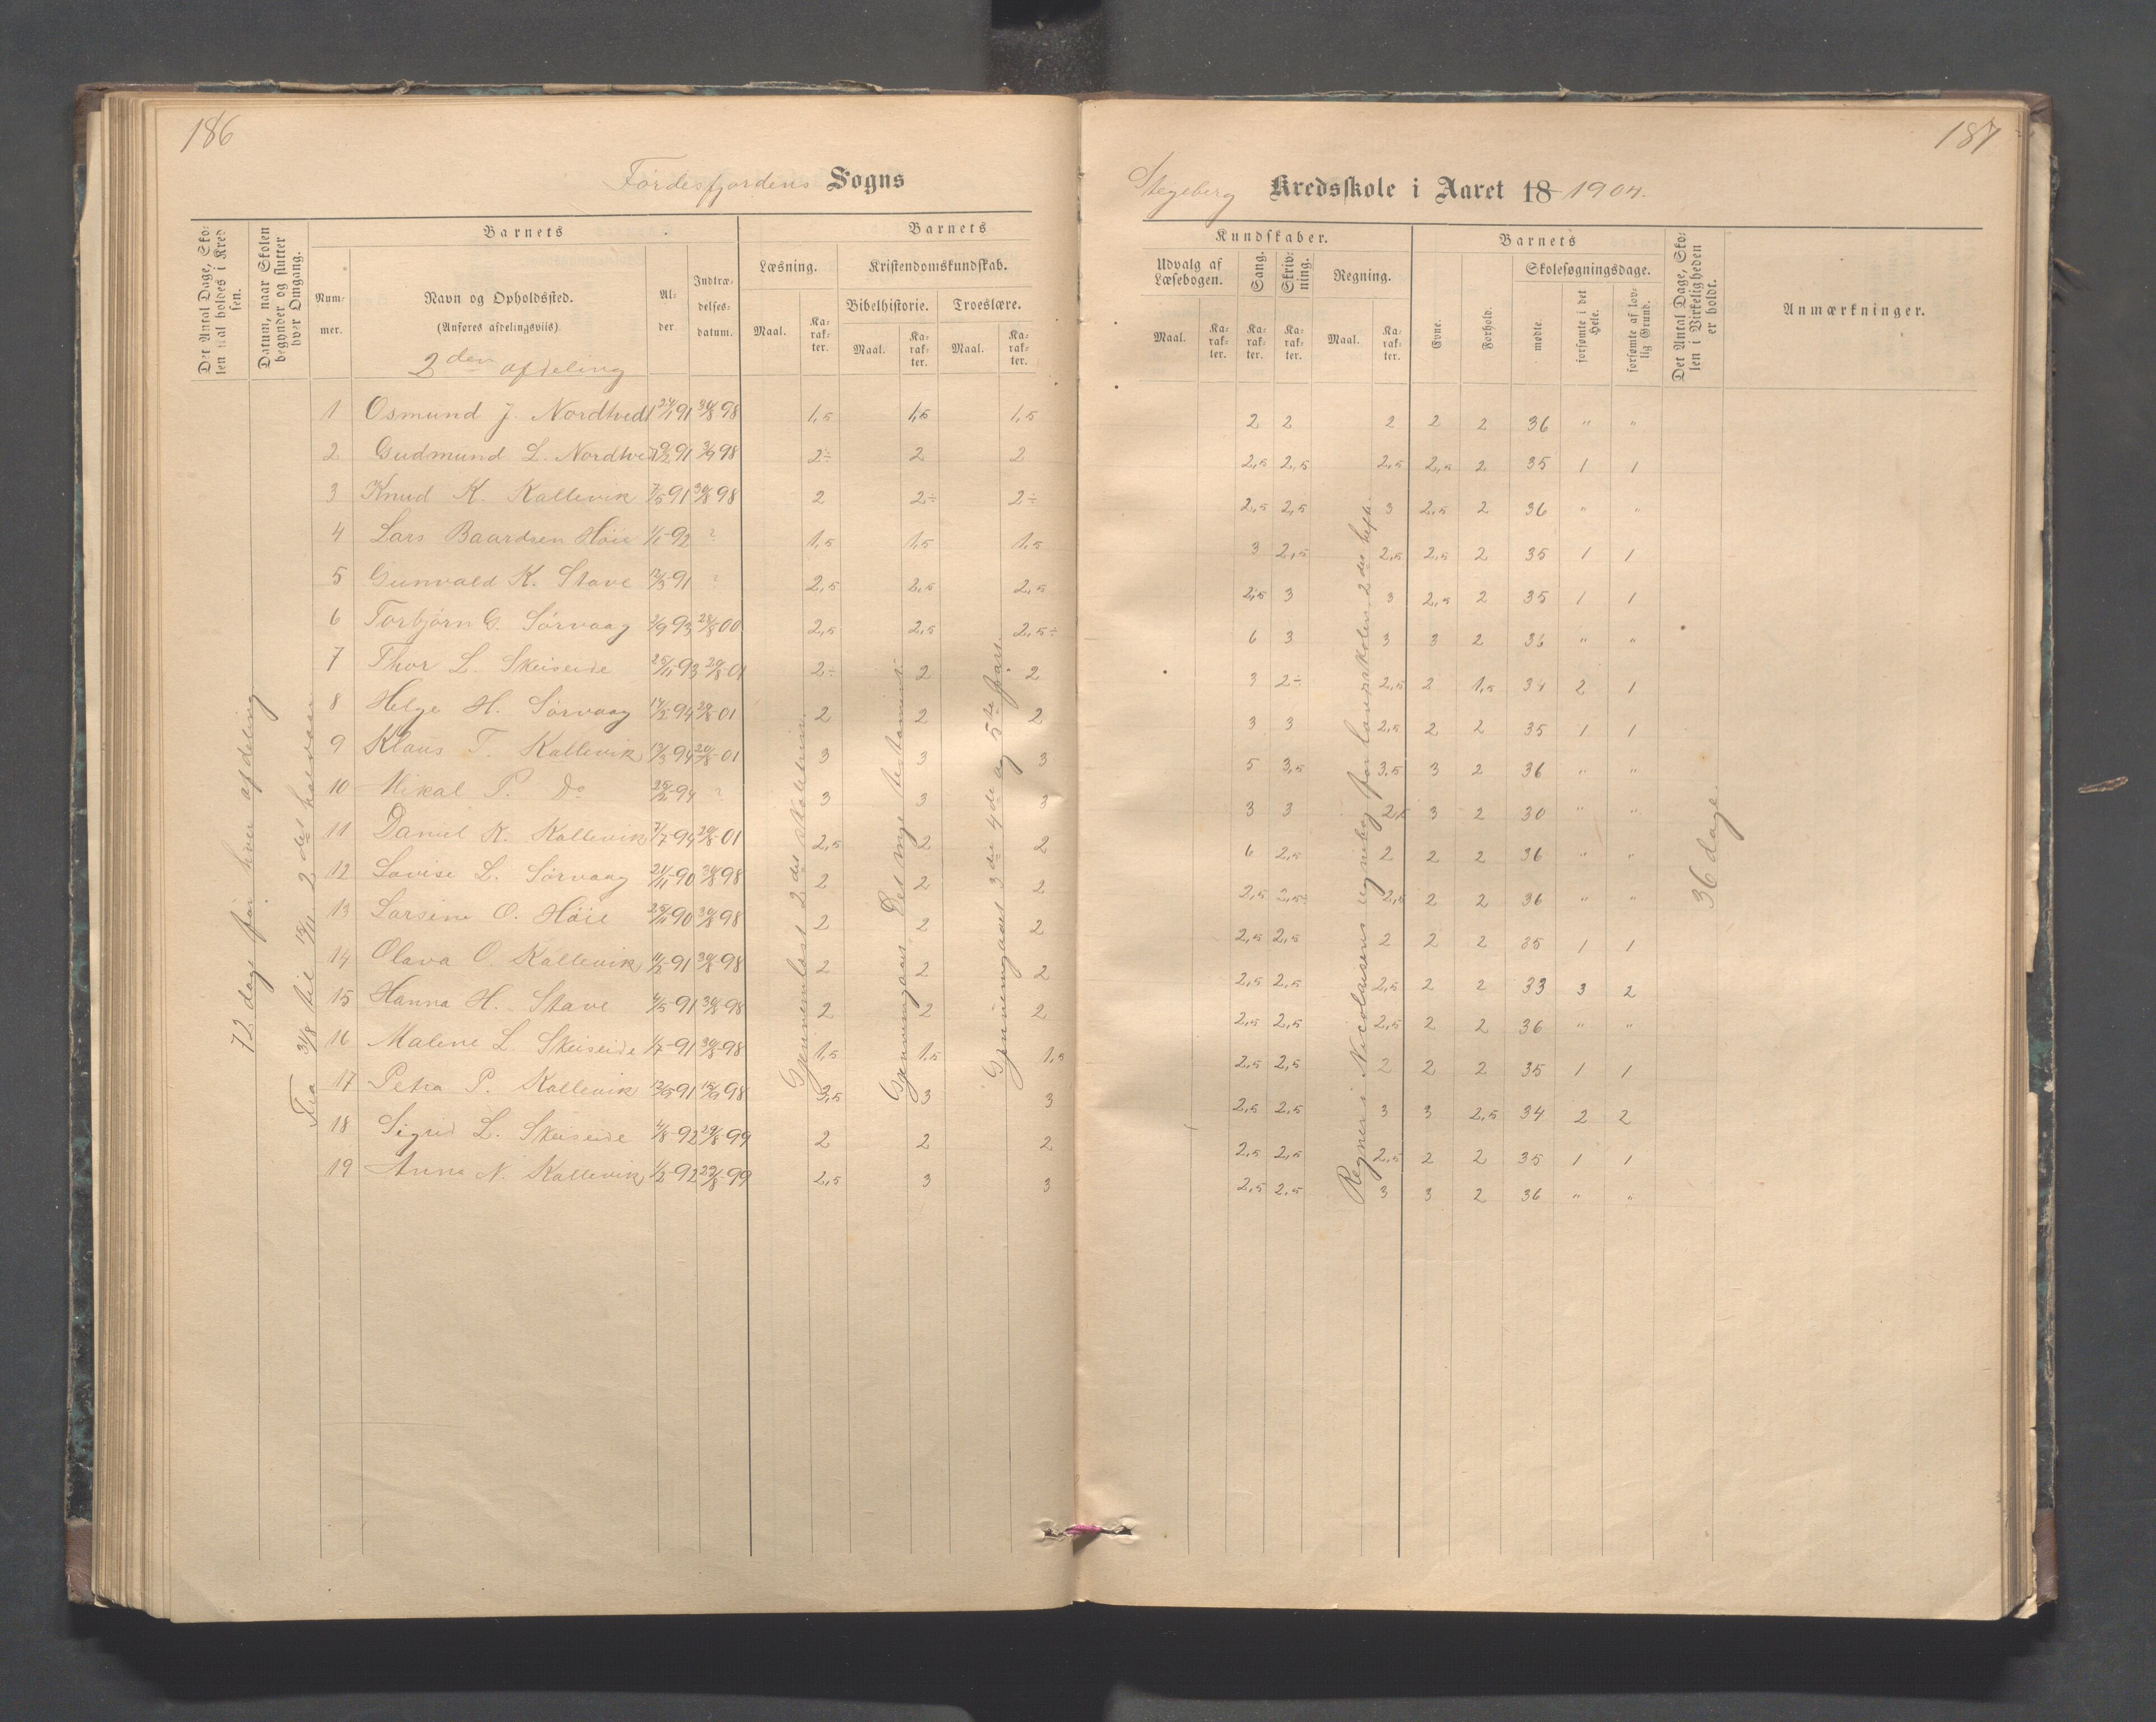 186
Fördesfjordens Sogns
Det Antal Dage, Skolen skal holdes i Kredsen.
Datum, naar Skolen begynder og slutter hver Omgang.
Barnets
Nummer.
Navn og Opholdssted.
(Anføres afdelingsviis).
2den afdeling
Alder
Indtrædelsesdatum.
Barnets
Læsning.
Maal.
Karakter.
Kristendomskundskab.
Bibelhistorie.
Maal.
Karakter.
Troeslære.
Maal.
Karakter.
72 dage for hver afdeling
Fra 31/8 til 15/11 2det halvaar
Gjennemlæst 2det skoletrin
Gjennemgaaet Det nye testament
Gjennemgaaet 3die 4de og 5te part.
1 Osmund J. Nordtved 24/1 91 30/8 98 1,5 1,5 1,5
2 Gudmund L. Nordtved 91 98 2÷ 2 2
3 Knud K. Kallevik 7/5 91 30/8 98 2 2÷ 2÷
4 Lars Baardsen Höie 1/1-92 ? 1,5 1,5 1,5
5 Gunvald K. Stave 12/3-91 ? 2,5 2,5 2,5
6 Torbjörn G. Sörvaag 2/9 93 28/8-00 2,5 2,5 2,5÷
7 Thor L. Skeiseide 25/11-93 20/8-01 2÷ 2 2
8 Helge H. Sörvaag 14/2-94 20/8-01 2 2 2
9 Klaus T. Kallevik 13/3-94 20/8-01 3 3 3
10 Mikal P. Do 94 ? 3 3 3
11 Daniel K. Kallevik 7/7-94 20/8-01 2,5 2 2
12 Lovise L. Sörvaag 21/11-90 30/8 98 2 2 2
13 Larsine O. Höie 25/11 90 30/8 98 2 2 2
14 Olava O. Kallevik 11/2-91 30/8-98 2 2 2
15 Hanna H. Stave 4/5-91 30/8-98 2 2 2
16 Malene L. Skeiseide 1/7-91 30/8-98 1,5 1,5 1,5
17 Petra P. Kallevik 91 15/9 98 3,5 3 3
18 Sigrid L. Skeiseide 4/8-92 29/8-99 2 2 2
19 Anna N. Kallevik 1/2-92 29/8-99 2,5 3 3
187
Stegeberg Kredsskole i Aaret 18 1904.
Kundskaber.
Udvalg af Læsebogen.
Maal.
Karakter.
Sang.
Karakter.
Skrivning.
Karakter.
Regning.
Maal.
Karakter.
Barnets
Evne.
Forhold.
Skolesøgningsdage.
mødte.
forsømte i det Hele.
forsømte af lovlig Grund.
Det Antal Dage, Skolen i Virkeligheden er holdt.
Anmærkninger.
Regner i Nicolaisens regnebog for landsskolen 2det hefte.
36 dage.
2 2 2 2 2 36 " "
2,5 2,5 2,5 2,5 2 35 1 1
2,5 2,5 3 2,5 2 36 " "
3 2,5 2,5 2,5 2 35 1 1
2,5 3 3 2,5 2 35 1 1
6 3 3 3 2 36 " "
3 2÷ 2,5 2 1,5 34 2 1
3 3 2,5 2 2 35 1 1
5 3,5 3,5 3 2 36 " "
3 3 2,5 3 2 30 " "
6 2,5 2 2 2 36 " "
2,5 2,5÷ 2,5 2 2 36 " "
2,5 2,5 2 2 2 35 1 1
2,5 2,5 2,5 2 2 33 3 2
2,5 2,5 2,5 2 2 36 " "
2,5 2,5 2 2 2 35 1 1
2,5 2,5 3 3 2,5 34 2 2
2,5 2,5 2,5 2 2 35 1 1
2,5 2,5 3 3 2 36 " "